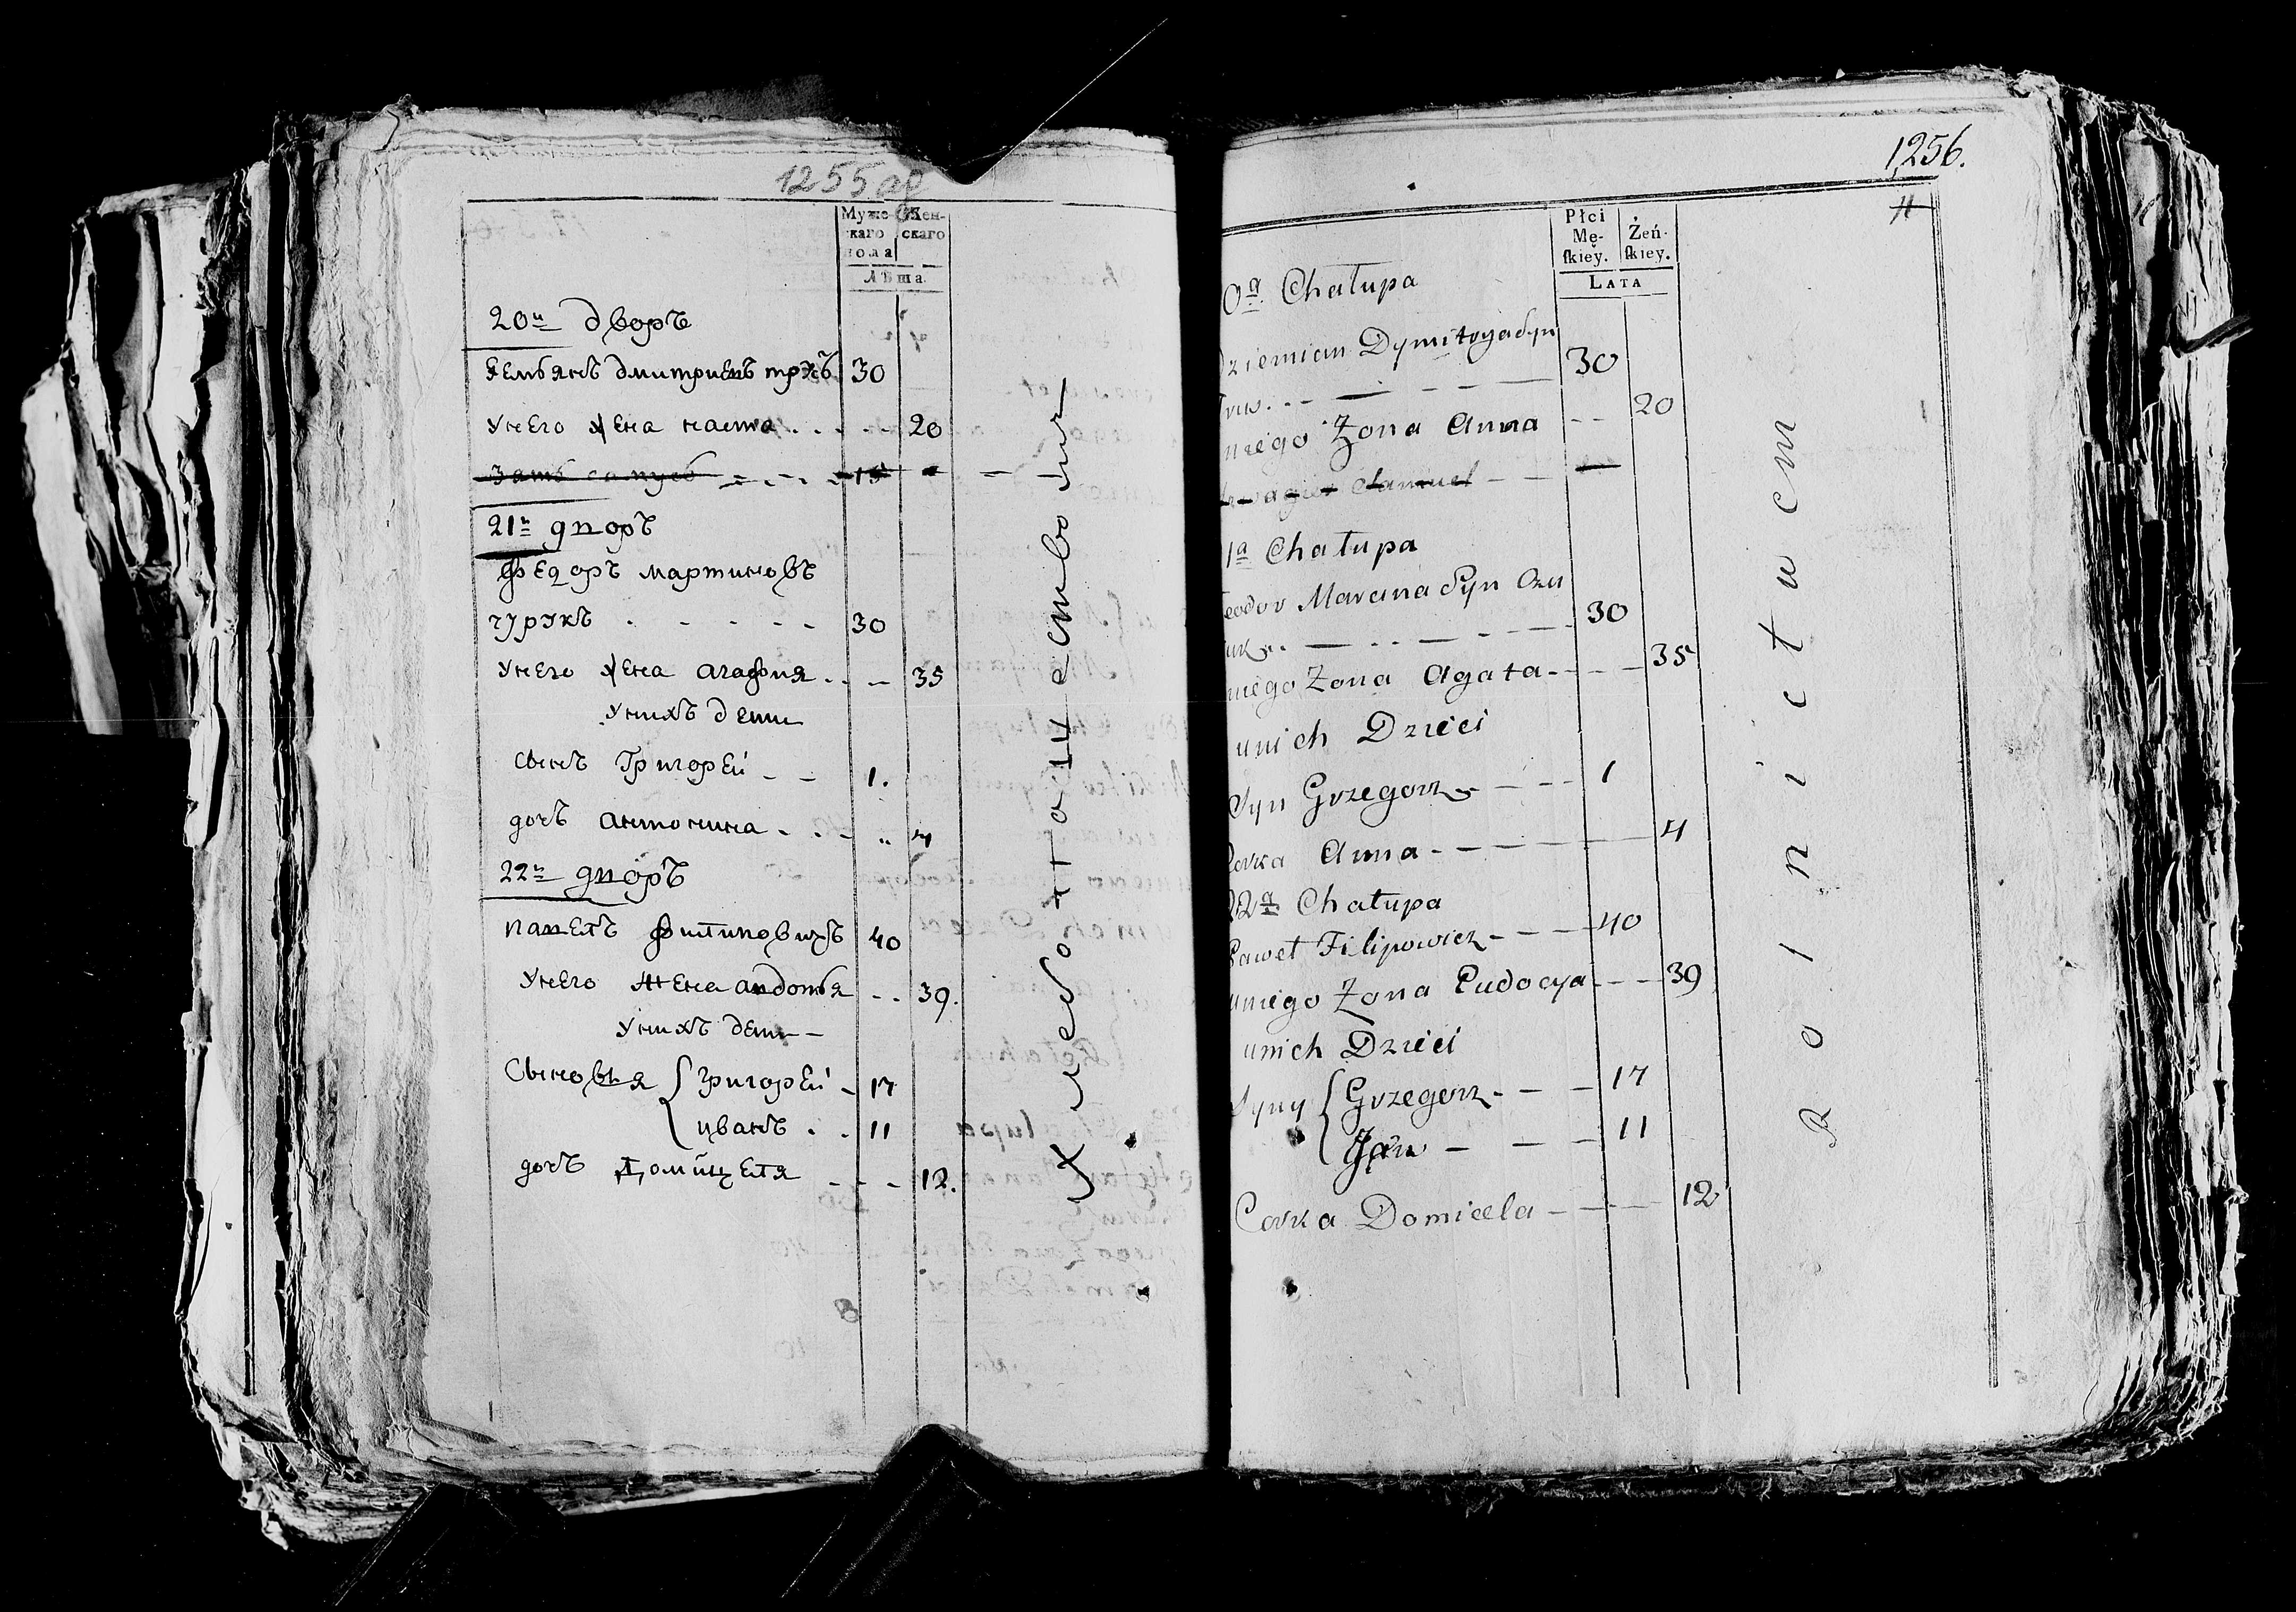 1255 об
Муже- Жен-
скаго скаго
пола
Лѣта
20й дворъ
Демьянъ дмитриевъ трусъ 30
унего жена настя 20
Зать самусь 15
21й дворъ
Федоръ мартиновъ
чурукъ 30
унего жена агафия 35
унихъ дети
сынъ Григорей 1.
дочь антонина 4
22й дворъ
павелъ филиповичъ 40
унего жена авдотья 39.
унихъ дети
Сыновья Григорей 17
иванъ 11
дочь Домицеля 12.
Хлебопашествомъ
1256.
11
Płci
Mę- Żeń-
ſkiey. ſkiey.
Lata
0a Chałupa
Dziemian Dymitryasyn
Trus 30
uniego Żona Anna 20
Szwagier Samuel
1a Chałupa
Teodor Marcina Syn Czu
ruk 30
uniego Żona Agata 35
unich Dzieci
Syn Grzegorz 1
Corka Anna 4
22a Chałupa
Paweł Filipowicz 40
uniego Żona Eudocya 39
unich Dzieci
Syny Grzegorz 17
Jan 11
Corka Domicela 12
Rolnictwem